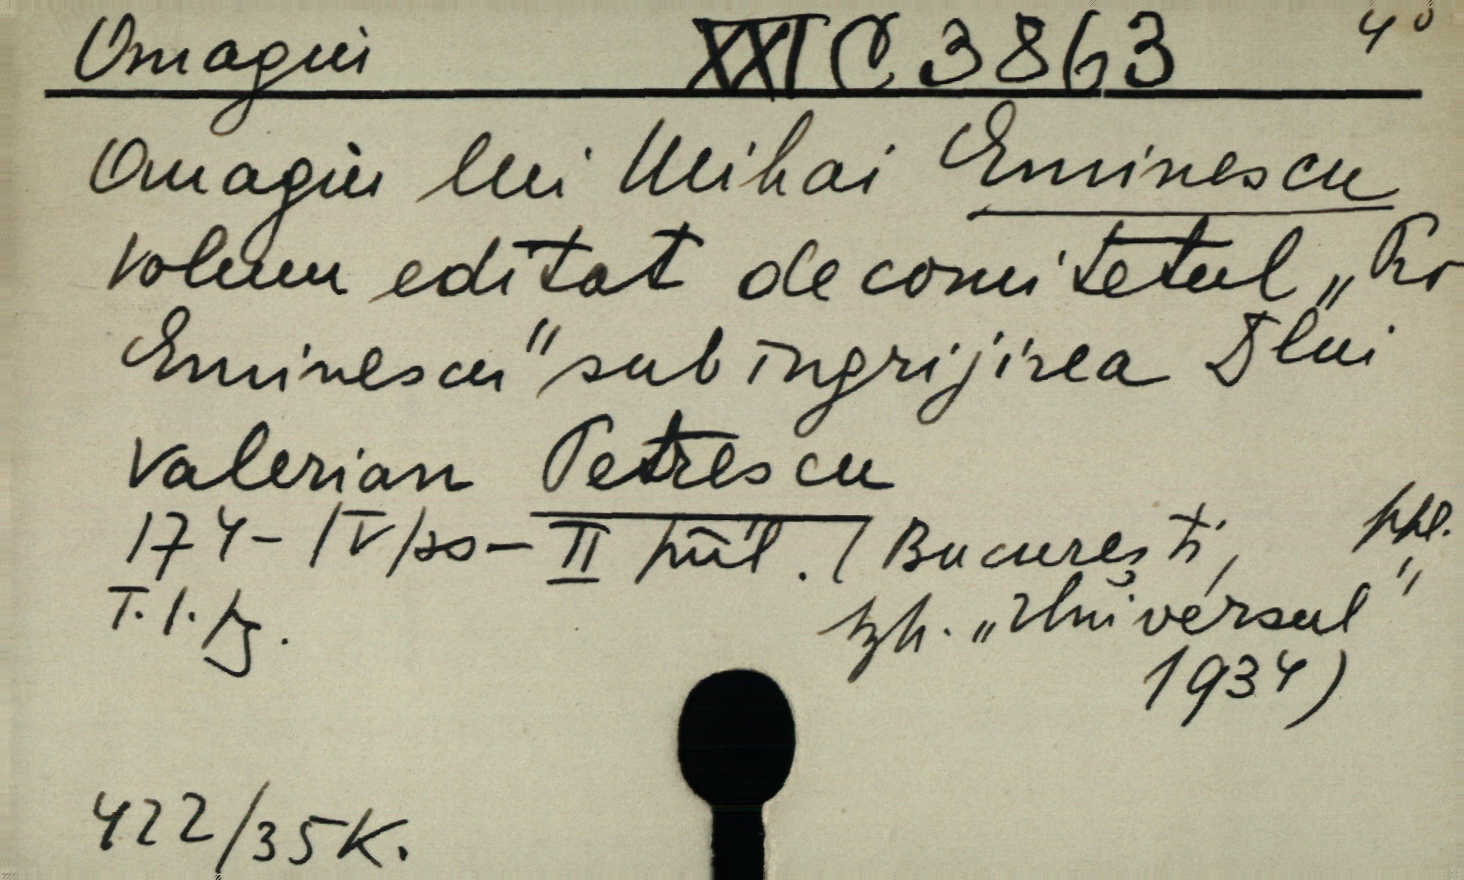 Omagiu XXI C 3863 4°
Omagiu lui Mihai Eminescu
Volum editat de comitetul „Pro
Eminescu" sub ingrijirea Dlui
Valerian Petrescu
174 - IV/30 - II (București,
T. 1. „Universul"
1934)
422/35K.